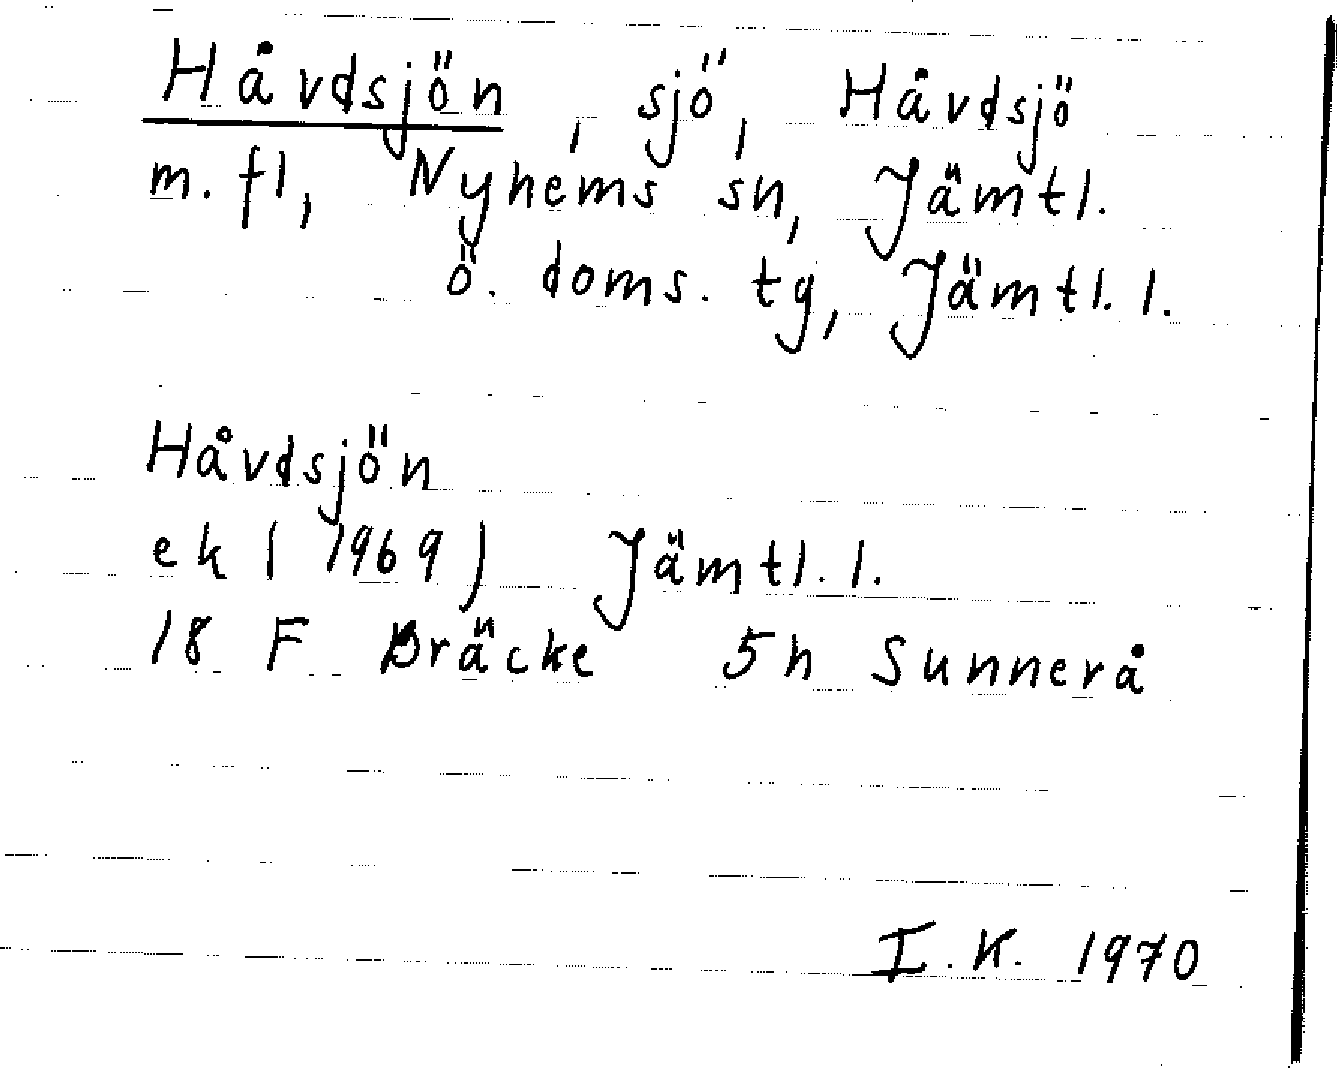 Håvdsjön, sjö, Håvdsjö
m. fl, Nyhems sn, Jämtl.
ö. doms. tg, Jämtl. l.
Håvdsjön
ek (1969) Jämtl. l.
18 F Bräcke 5h Sunnerå
I. K. 1970